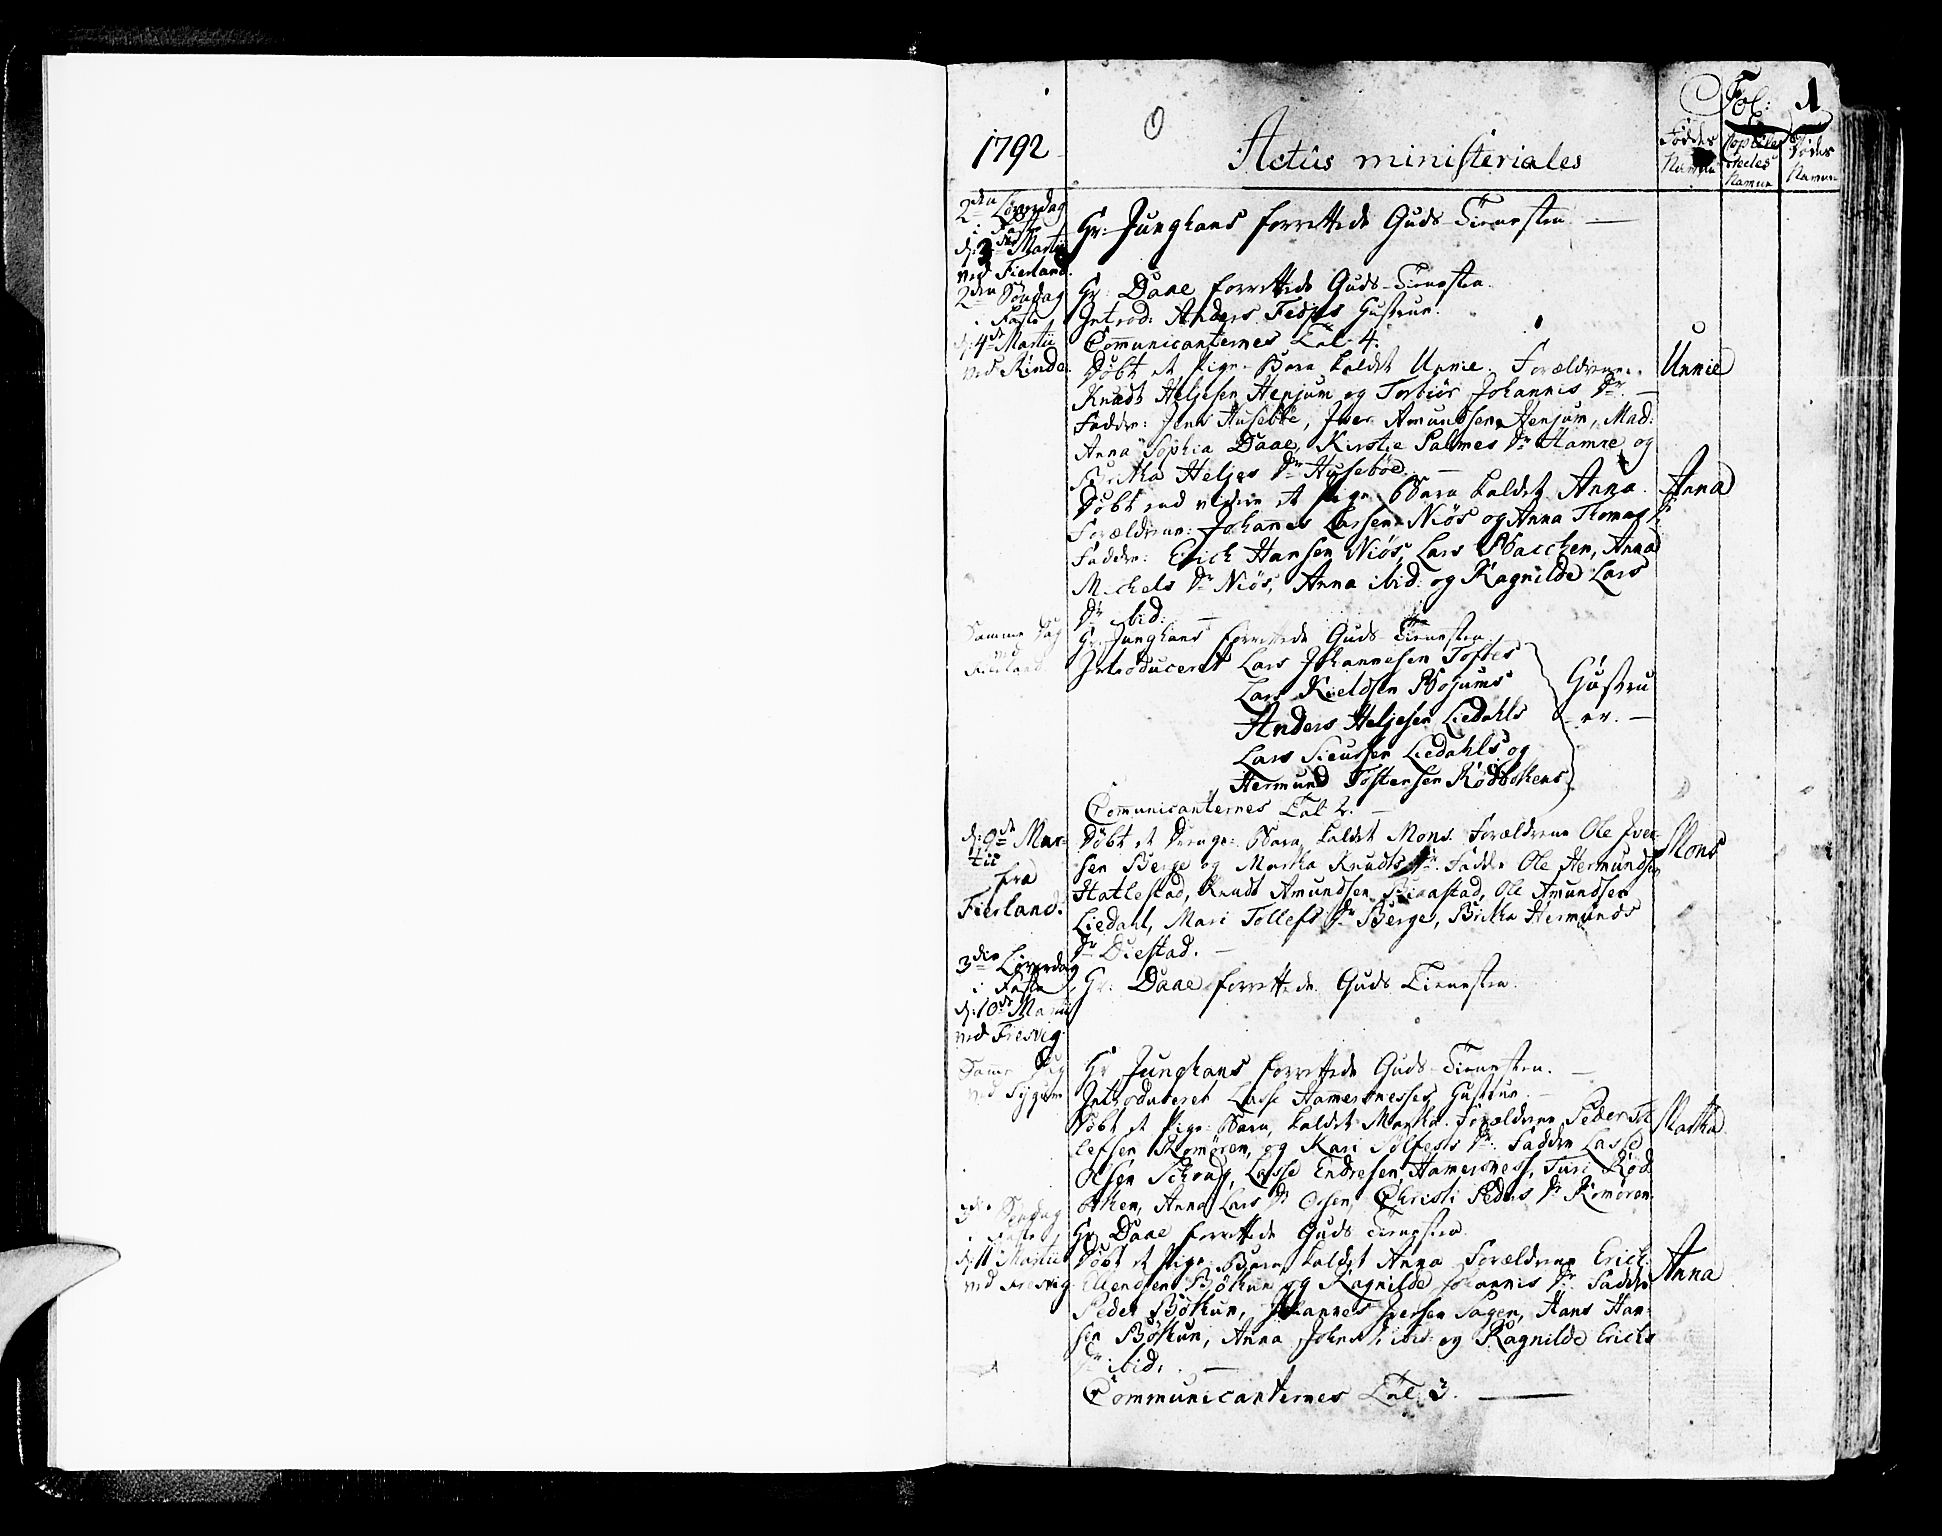 Fol: 1
1792
Actus ministeriales
Fødde Namne
Copuleredes Namne
Dødes Namne
2den Løverdag
i Faste
d: 3de Martii
ved Fierland.
Hr: Junghans forrettede Guds-Tienesten. —
2den Søndag
i Faste
d: 4de Martii
ved Rinde.
Hr: Daae forrettede Guds-Tienesten.
Introd: Anders Hustrue.
Communicanternes Tal 4.
Døbt et Pige-Barn kaldet Unnie. Forældrene: Unnie
Knudt Heljesen Henjum og Torbiør Johannis Dr. —
Faddre: Jens Husebøe, Iver Amundsen Henjum, Mad:
Anna Sophia Daae, Kirstje Palmes Dr Hamre og
Britha Heljes Dr Husebøe. —
Døbt end videre et Pige-Barn kaldet Anna. Anna
Forældrene: Johannes Larsen Niøs og Anna Thomas Dr.
Faddre: Erich Hansen Niøs, Lars Bacchen, Anna
Michels Dr Niøs, Anna ibid: og Ragnilde Lars
Dr ibid: —
Samme Dag
ved
Fierland
Hr: Junghans forrettede Guds-Tienesten.
Introduceret Lars Johannesen Toftes
Lars Kieldsen Bojums
Anders Heljesen Liedahls
Lars Siursen Liedahls og
Hermund Tostensen Rødbothens
Hustru
er. —
Communicanternes Tal 2. —
d: 9de Mar-
tii
fra
Fierland.
Døbt et Drenge-Barn, kaldet Mons. Forældrene Ole Iver- Mons
sen Berge og Martha Knudts Dr. Faddre Ole Hermundsen
Hatlestad, Knudt Amundsen, Ole Amundsen
Liedahl, Mari Tollefs Dr Berge, Britha Hermunds
Dr Distad. —
3die Løverdag
i Faste
d: 10de Martii
ved Fresvig.
Hr: Daae forrettede Guds Tienesten.
Samme Dag
ved Tygum
Hr Junghans forrettede Guds-Tienesten. —
Introduceret Lasse Hamersnesses Hustrue. —
Døbt et Pige-Barn, kaldet Martha. Forældrene Peder El- Martha
lefsen Romøren, og Kari Sølfests Dr. Faddre Lasse
Olsen, Lasse Endresen Hamersness, Turi Rød-
bothen, Anna Lars Dr, Christi Peders Dr Romøren.
3die Søndag
i Faste
d: 11 Martii
ved Fresvig
Hr Daae forrettede Guds Tienesten.
Døbt et Pige-Barn kaldet Anna Forældrene Erich Anna
Ellendsen Bøthun og Ragnilde Johannis Dr. Faddre
Peder Bøthun, Johannes Iversen, Hans Han-
sen Bøthun, Anna ibid: og Ragnilde Erichs
Dr ibid: —
Communicanternes Tal 3. —